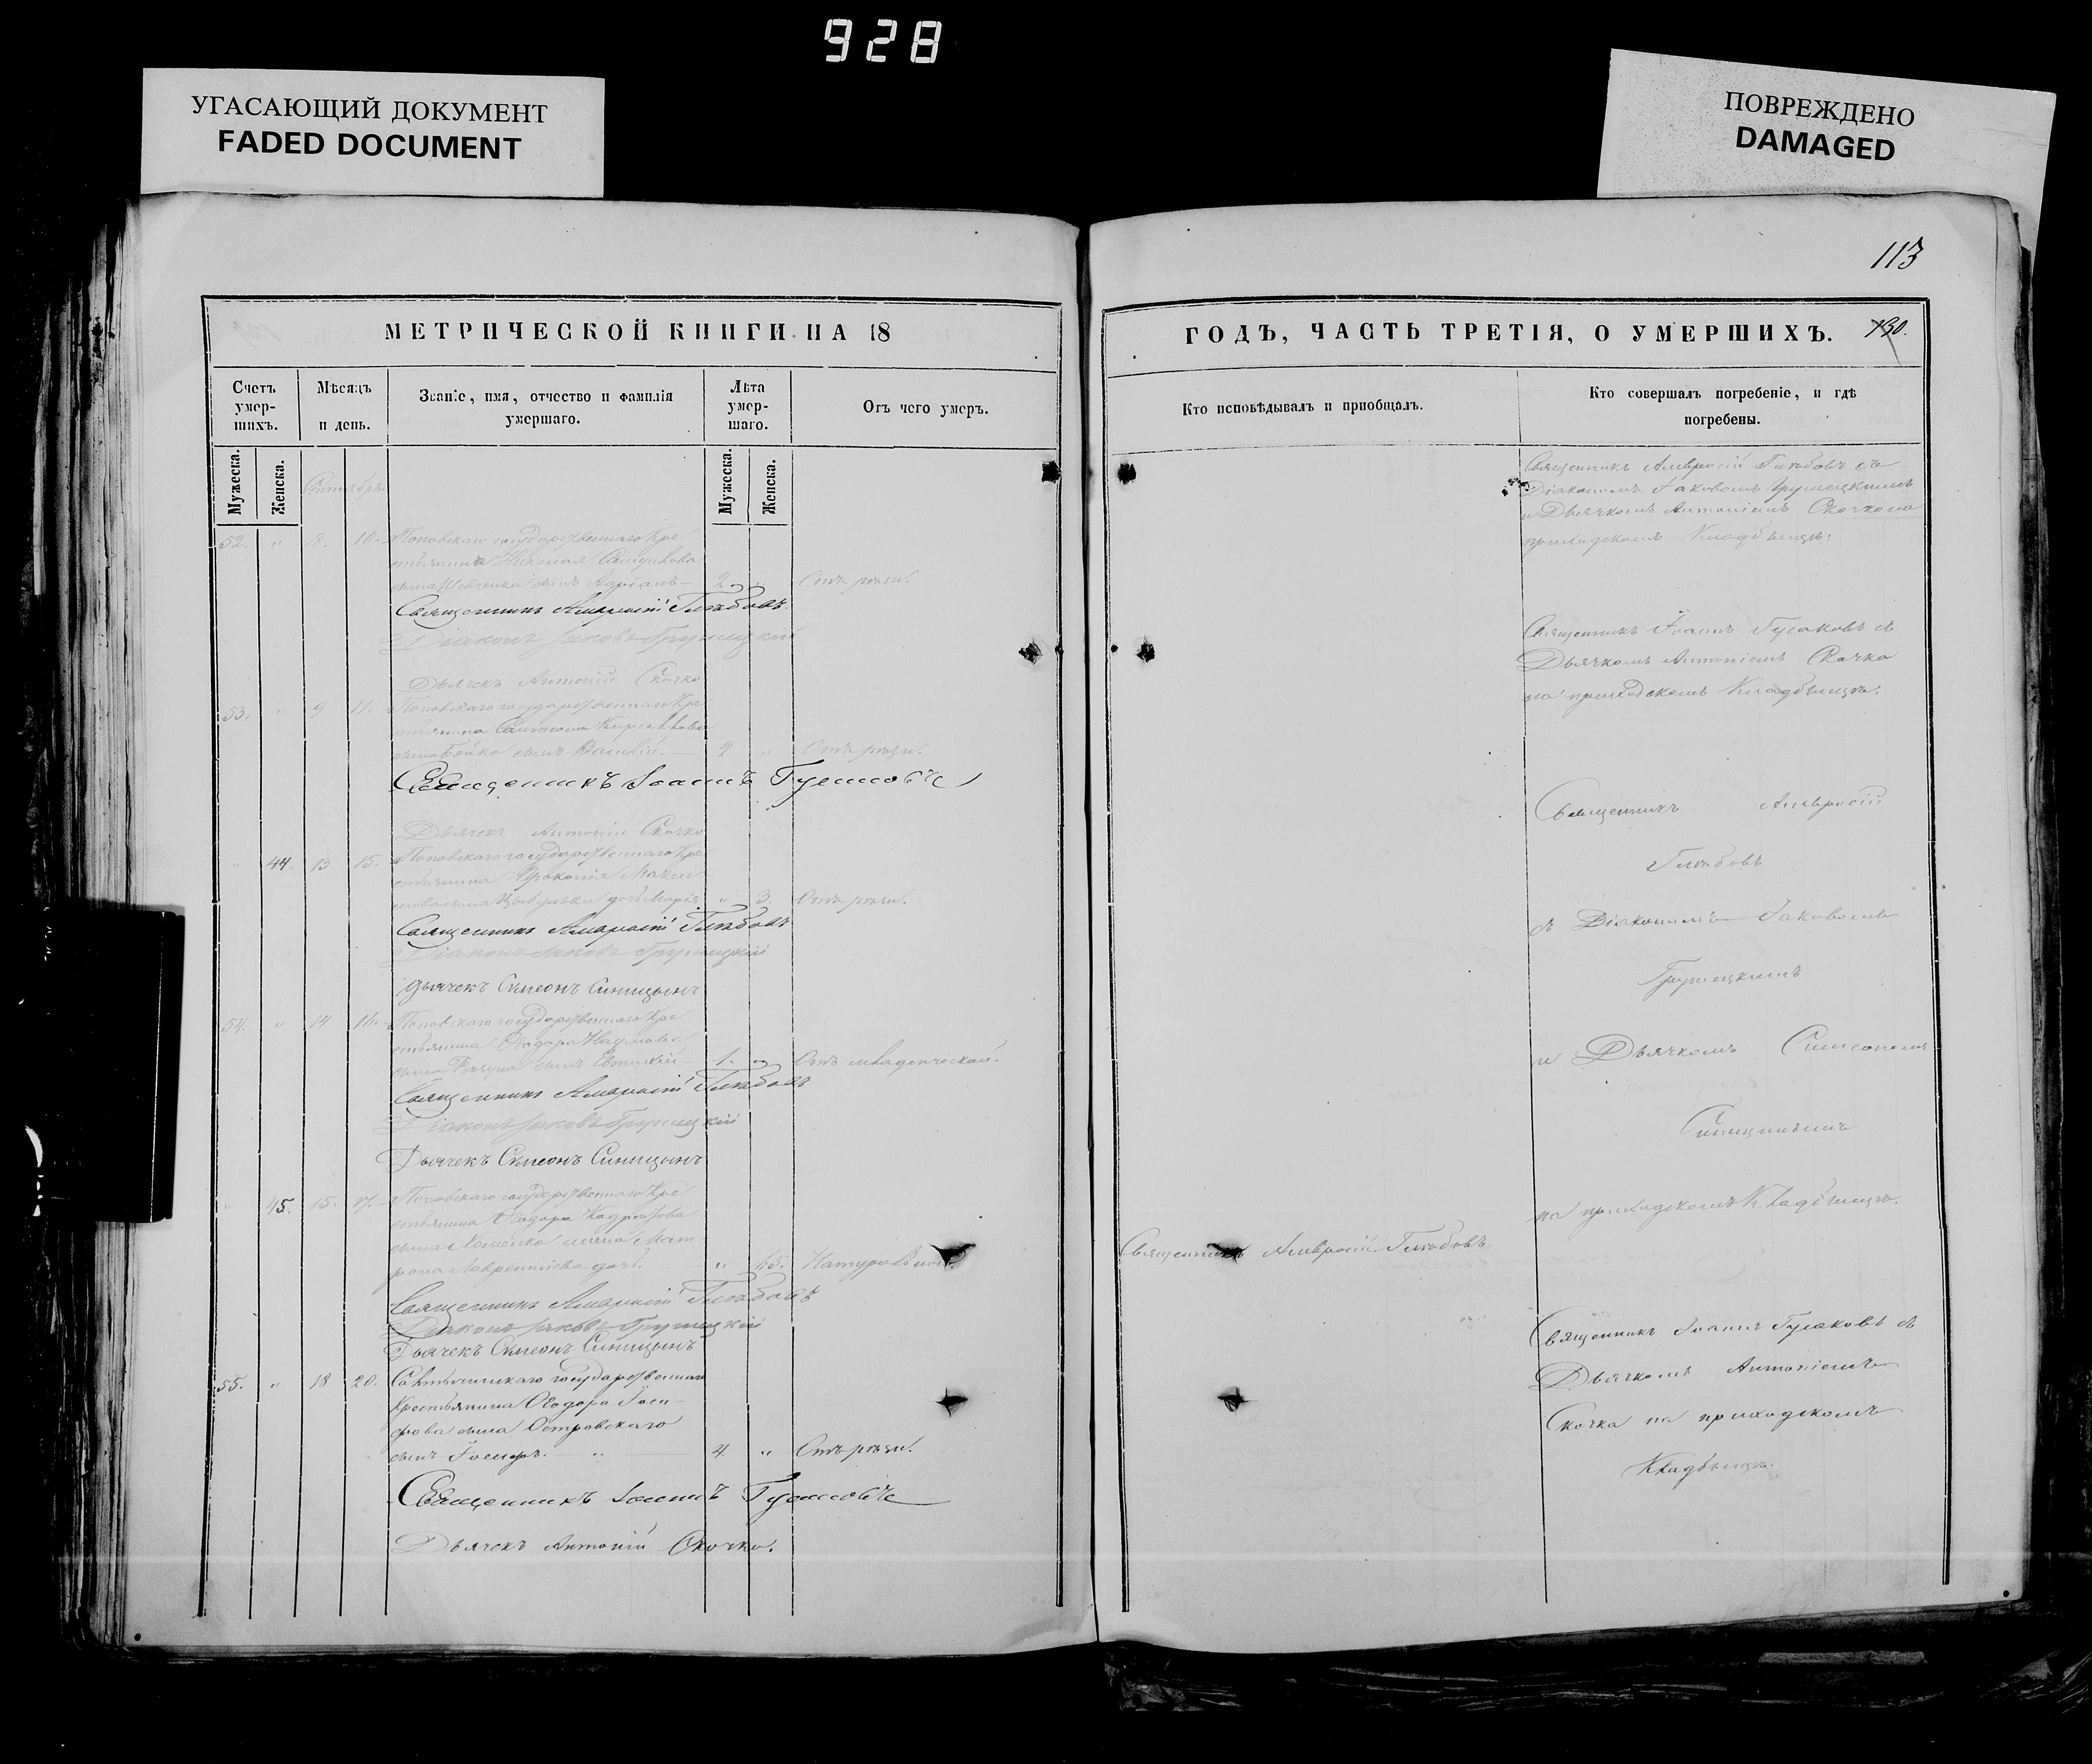 928
УГАСАЮЩИЙ ДОКУМЕНТ
FADED DOCUMENT
ПОВРЕЖДЕНО
DAMAGED
113
МЕТРИЧЕСКОЙ КНИГИ НА 18
Счетъ умер-
шихъ.
Мѣсяцъ
и день.
Званіе, имя, отчество и фамилія
умершаго.
Лѣта
умер-
шаго.
Отъ чего умеръ.
Мужеска.
Женска.
Мужеска.
Женска.
Сентябрь.
52. " 8. 10. Поповскаго государственнаго Кре
стьянина
сына Шевченка сынъ Адріанъ 2 " Отъ рѣзи.
Священникъ Амвросій Глѣбовъ
Діаконъ Іаковъ Грушецкій
Дьячекъ Антоній Скочко
53. " 9 11. Поповскаго государственнаго Кре
стьянина
сына Бойко сынъ Василій. 2 " Отъ рѣзи.
Священникъ Іоаннъ
Дьячекъ Антоній Скочко
" 44. 13 15. Поповскаго государственнаго Кре
стьянина Макси
мова сына дочь Марія " 3. Отъ рѣзи.
Священникъ Амвросій Глѣбовъ
Діаконъ Іаковъ Грушецкій
Дьячекъ Симеонъ Синицынъ
54. " 14 16. Поповскаго государственнаго Кре
стьянина Ѳеодора Наумова
сына сынъ Евтихій 1. " Отъ младенческой.
Священникъ Амвросій Глѣбовъ
Діаконъ Іаковъ Грушецкій
Дьячекъ Симеонъ Синицынъ
" 45. 15. 17. Поповскаго государственнаго Кре
стьянина Ѳеодора
сына Хоменко жена Мат
рона Лаврентіева дочь. " 65. Натурально.
Священникъ Амвросій Глѣбовъ
Діаконъ Іаковъ Грушецкій
Дьячекъ Симеонъ Синицынъ
55. " 18 20. государственнаго
Крестьянина Ѳеодора Іоси
фова сына Островскаго
сынъ Іосифъ. " 4. " Отъ рѣзи.
Священникъ Іоаннъ
Дьячекъ Антоній Скочко.
ГОДЪ, ЧАСТЬ ТРЕТІЯ, О УМЕРШИХЪ. 130.
Кто исповѣдывалъ и пріобщалъ.
Кто совершалъ погребеніе, и гдѣ
погребены.
Священникъ Амвросій Глѣбовъ съ
Діакономъ Іаковомъ Грушецкимъ
и Дьячкомъ Антоніемъ Скочко на
приходскомъ Кладбищѣ.
Священникъ Іоаннъ Гусаковъ съ
Дьячкомъ Антоніемъ Скочко
на приходскомъ Кладбищѣ.
Священникъ Амвросій
Глѣбовъ
съ Діакономъ Іаковомъ
Грушецкимъ
и Дьячкомъ Симеономъ
Синицынымъ
на приходскомъ Кладбищѣ.
Священникъ Амвросій Глѣбовъ.
Священникъ Іоаннъ Гусаковъ съ
Дьячкомъ Антоніемъ
Скочко на приходскомъ
Кладбищѣ.